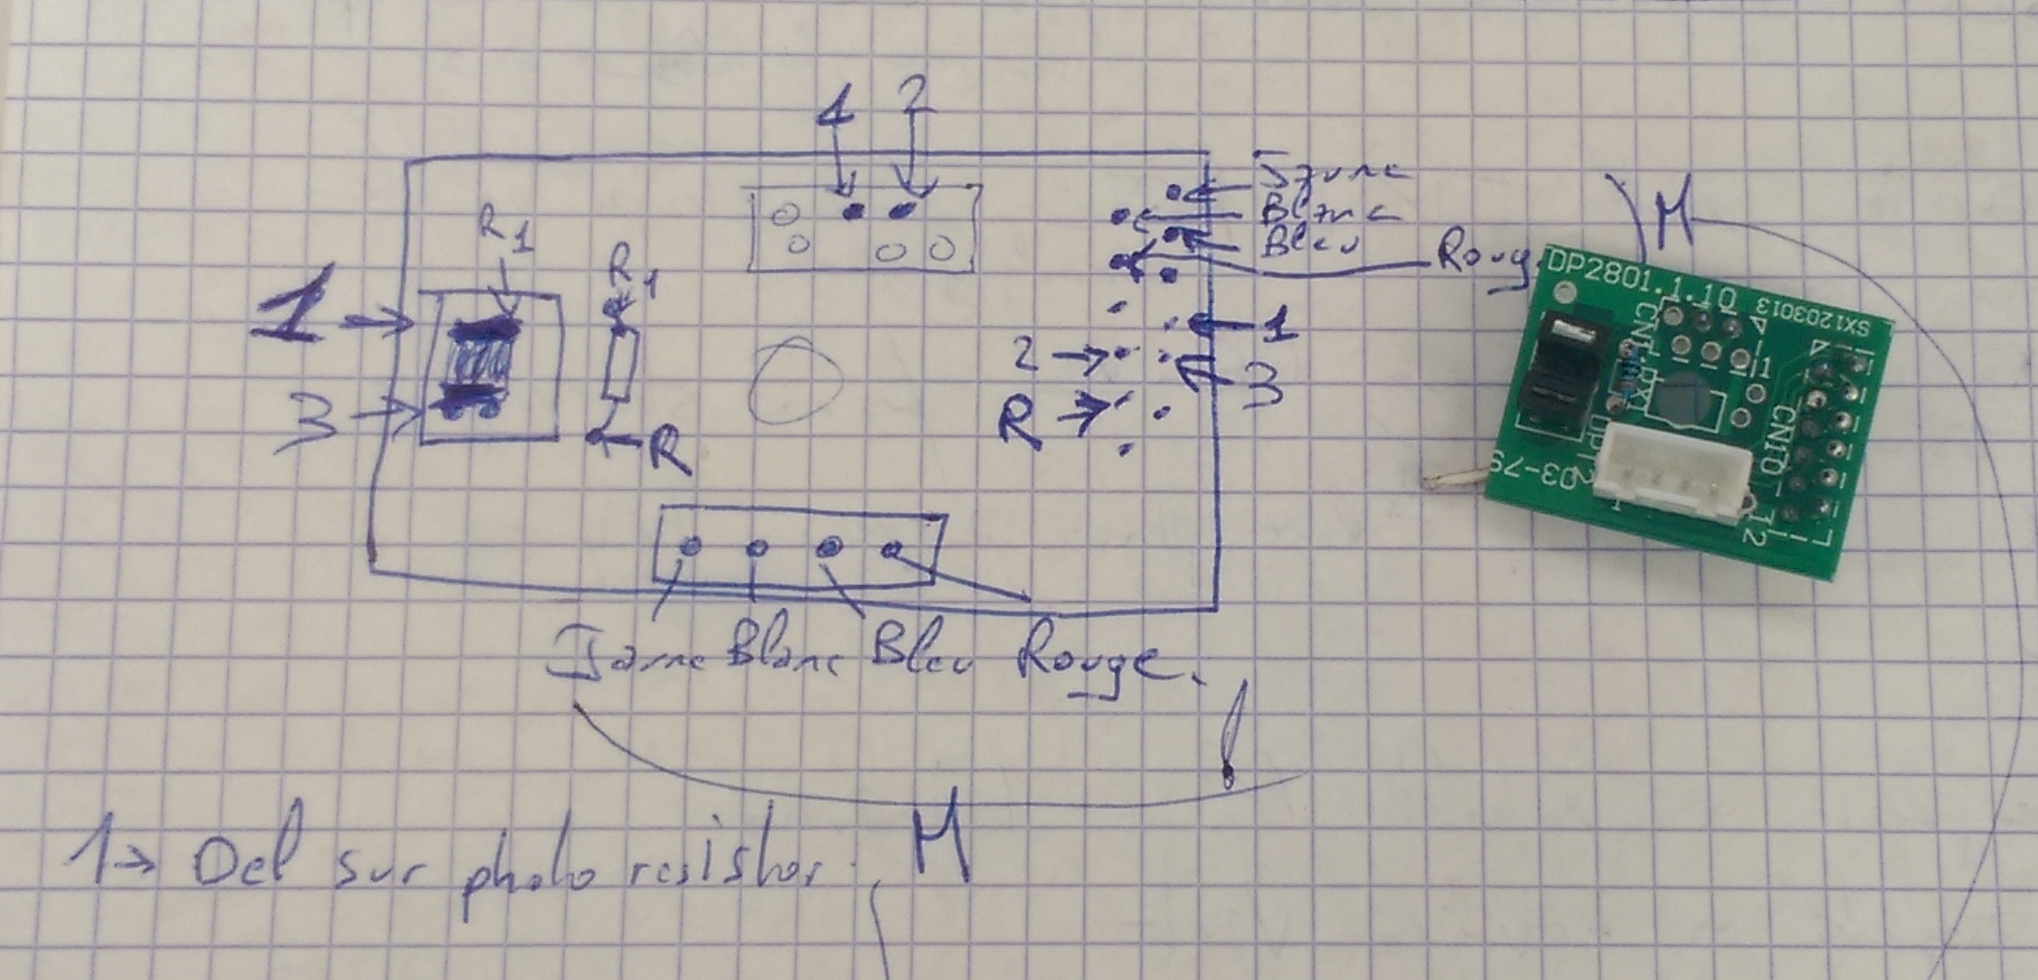 1 2
Jaune
Blanc
Bleu
Rouge
M
R1
R1
1
3
R
2
R
1
3
Jaune Blanc Bleu Rouge.
!
1→ Del sur photo resistor. M
DP2801.1.10
SX1203013
CN1
CN10
1
12